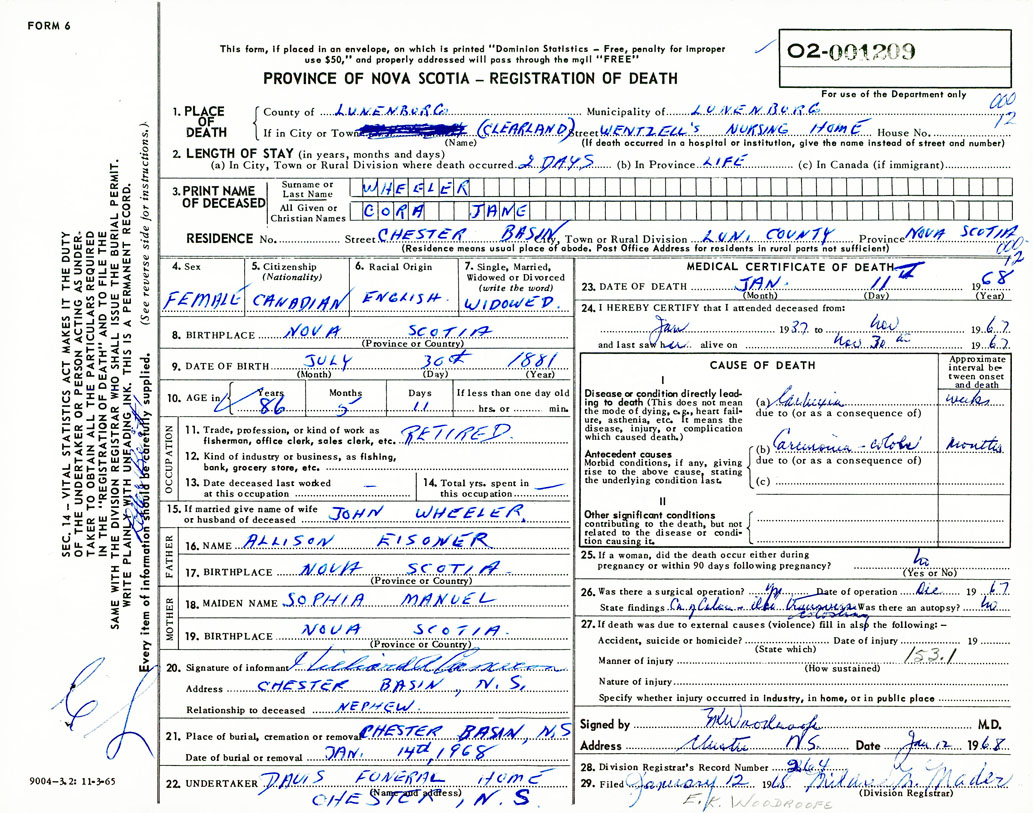 FORM 6
This form, if placed in an envelope, on which is printed "Dominion Statistics – Free, penalty for improper
use $50," and properly addressed will pass through the mail "FREE"
PROVINCE OF NOVA SCOTIA – REGISTRATION OF DEATH
02-001209
For use of the Department only
000
12
1. PLACE OF DEATH
County of LUNENBURG Municipality of LUNENBURG
If in City or Town (CLEARLAND) Street WENTZELL'S NURSING HOME House No.
(Name) (If death occurred in a hospital or institution, give the name instead of street and number)
2. LENGTH OF STAY (in years, months and days)
(a) In City, Town or Rural Division where death occurred 2 DAYS (b) In Province LIFE (c) In Canada (if immigrant)
3. PRINT NAME OF DECEASED
Surname or Last Name WHEELER
All Given or Christian Names CORA JANE
RESIDENCE No. Street CHESTER BASIN City, Town or Rural Division LUN. COUNTY Province NOVA SCOTIA
(Residence means usual place of abode. Post Office Address for residents in rural parts not sufficient)
000-
12
4. Sex FEMALE
5. Citizenship (Nationality) CANADIAN
6. Racial Origin ENGLISH.
7. Single, Married, Widowed or Divorced (write the word) WIDOWED.
8. BIRTHPLACE NOVA SCOTIA
(Province or Country)
9. DATE OF BIRTH JULY 30th 1881
(Month) (Day) (Year)
10. AGE in Years 86 Months 5 Days 11 If less than one day old hrs. or min.
OCCUPATION
11. Trade, profession, or kind of work as fisherman, office clerk, sales clerk, etc. RETIRED.
12. Kind of industry or business, as fishing, bank, grocery store, etc.
13. Date deceased last worked at this occupation —
14. Total yrs. spent in this occupation —
15. If married give name of wife or husband of deceased JOHN WHEELER.
FATHER
16. NAME ALLISON EISONER
17. BIRTHPLACE NOVA SCOTIA.
(Province or Country)
MOTHER
18. MAIDEN NAME SOPHIA MANUEL
19. BIRTHPLACE NOVA SCOTIA.
(Province or Country)
20. Signature of informant
Address CHESTER BASIN, N.S.
Relationship to deceased NEPHEW.
21. Place of burial, cremation or removal CHESTER BASIN, N.S
Date of burial or removal JAN. 14th, 1968
22. UNDERTAKER DAVIS FUNERAL HOME
(Name and address)
CHESTER, N.S.
MEDICAL CERTIFICATE OF DEATH
23. DATE OF DEATH JAN. 11 1968
(Month) (Day) (Year)
24. I HEREBY CERTIFY that I attended deceased from:
Jan 1937 to Nov 1967
and last saw her alive on Nov 30th 1967
CAUSE OF DEATH
Approximate interval between onset and death
I
Disease or condition directly leading to death (This does not mean the mode of dying, e.g., heart failure, asthenia, etc. It means the disease, injury, or complication which caused death.)
(a) Cachexia weeks
due to (or as a consequence of)
Antecedent causes
Morbid conditions, if any, giving rise to the above cause, stating the underlying condition last.
(b) Carcinoma - colon months
due to (or as a consequence of)
(c)
II
Other significant conditions contributing to the death, but not related to the disease or condition causing it.
25. If a woman, did the death occur either during pregnancy or within 90 days following pregnancy? No
(Yes or No)
26. Was there a surgical operation? Yes Date of operation Dec 1967
State findings Ca of Colon Transverse Was there an autopsy? No
27. If death was due to external causes (violence) fill in also the following: –
Accident, suicide or homicide? Date of injury 19
(State which)
153.1
Manner of injury
(How sustained)
Nature of injury
Specify whether injury occurred in industry, in home, or in public place
Signed by EKWoodroofe M.D.
Address Chester N.S. Date Jan 12 1968
28. Division Registrar's Record Number 264
29. Filed January 12 1968 Mildred M. Mader
(Division Registrar)
E.K. WOODROOFE
SEC. 14 – VITAL STATISTICS ACT MAKES IT THE DUTY
OF THE UNDERTAKER OR PERSON ACTING AS UNDER-
TAKER TO OBTAIN ALL THE PARTICULARS REQUIRED
IN THE "REGISTRATION OF DEATH" AND TO FILE THE
SAME WITH THE DIVISION REGISTRAR WHO SHALL ISSUE THE BURIAL PERMIT.
WRITE PLAINLY WITH UNFADING INK. THIS IS A PERMANENT RECORD.
Every item of information should be carefully supplied. (See reverse side for instructions.)
9004-3.2: 11-3-65